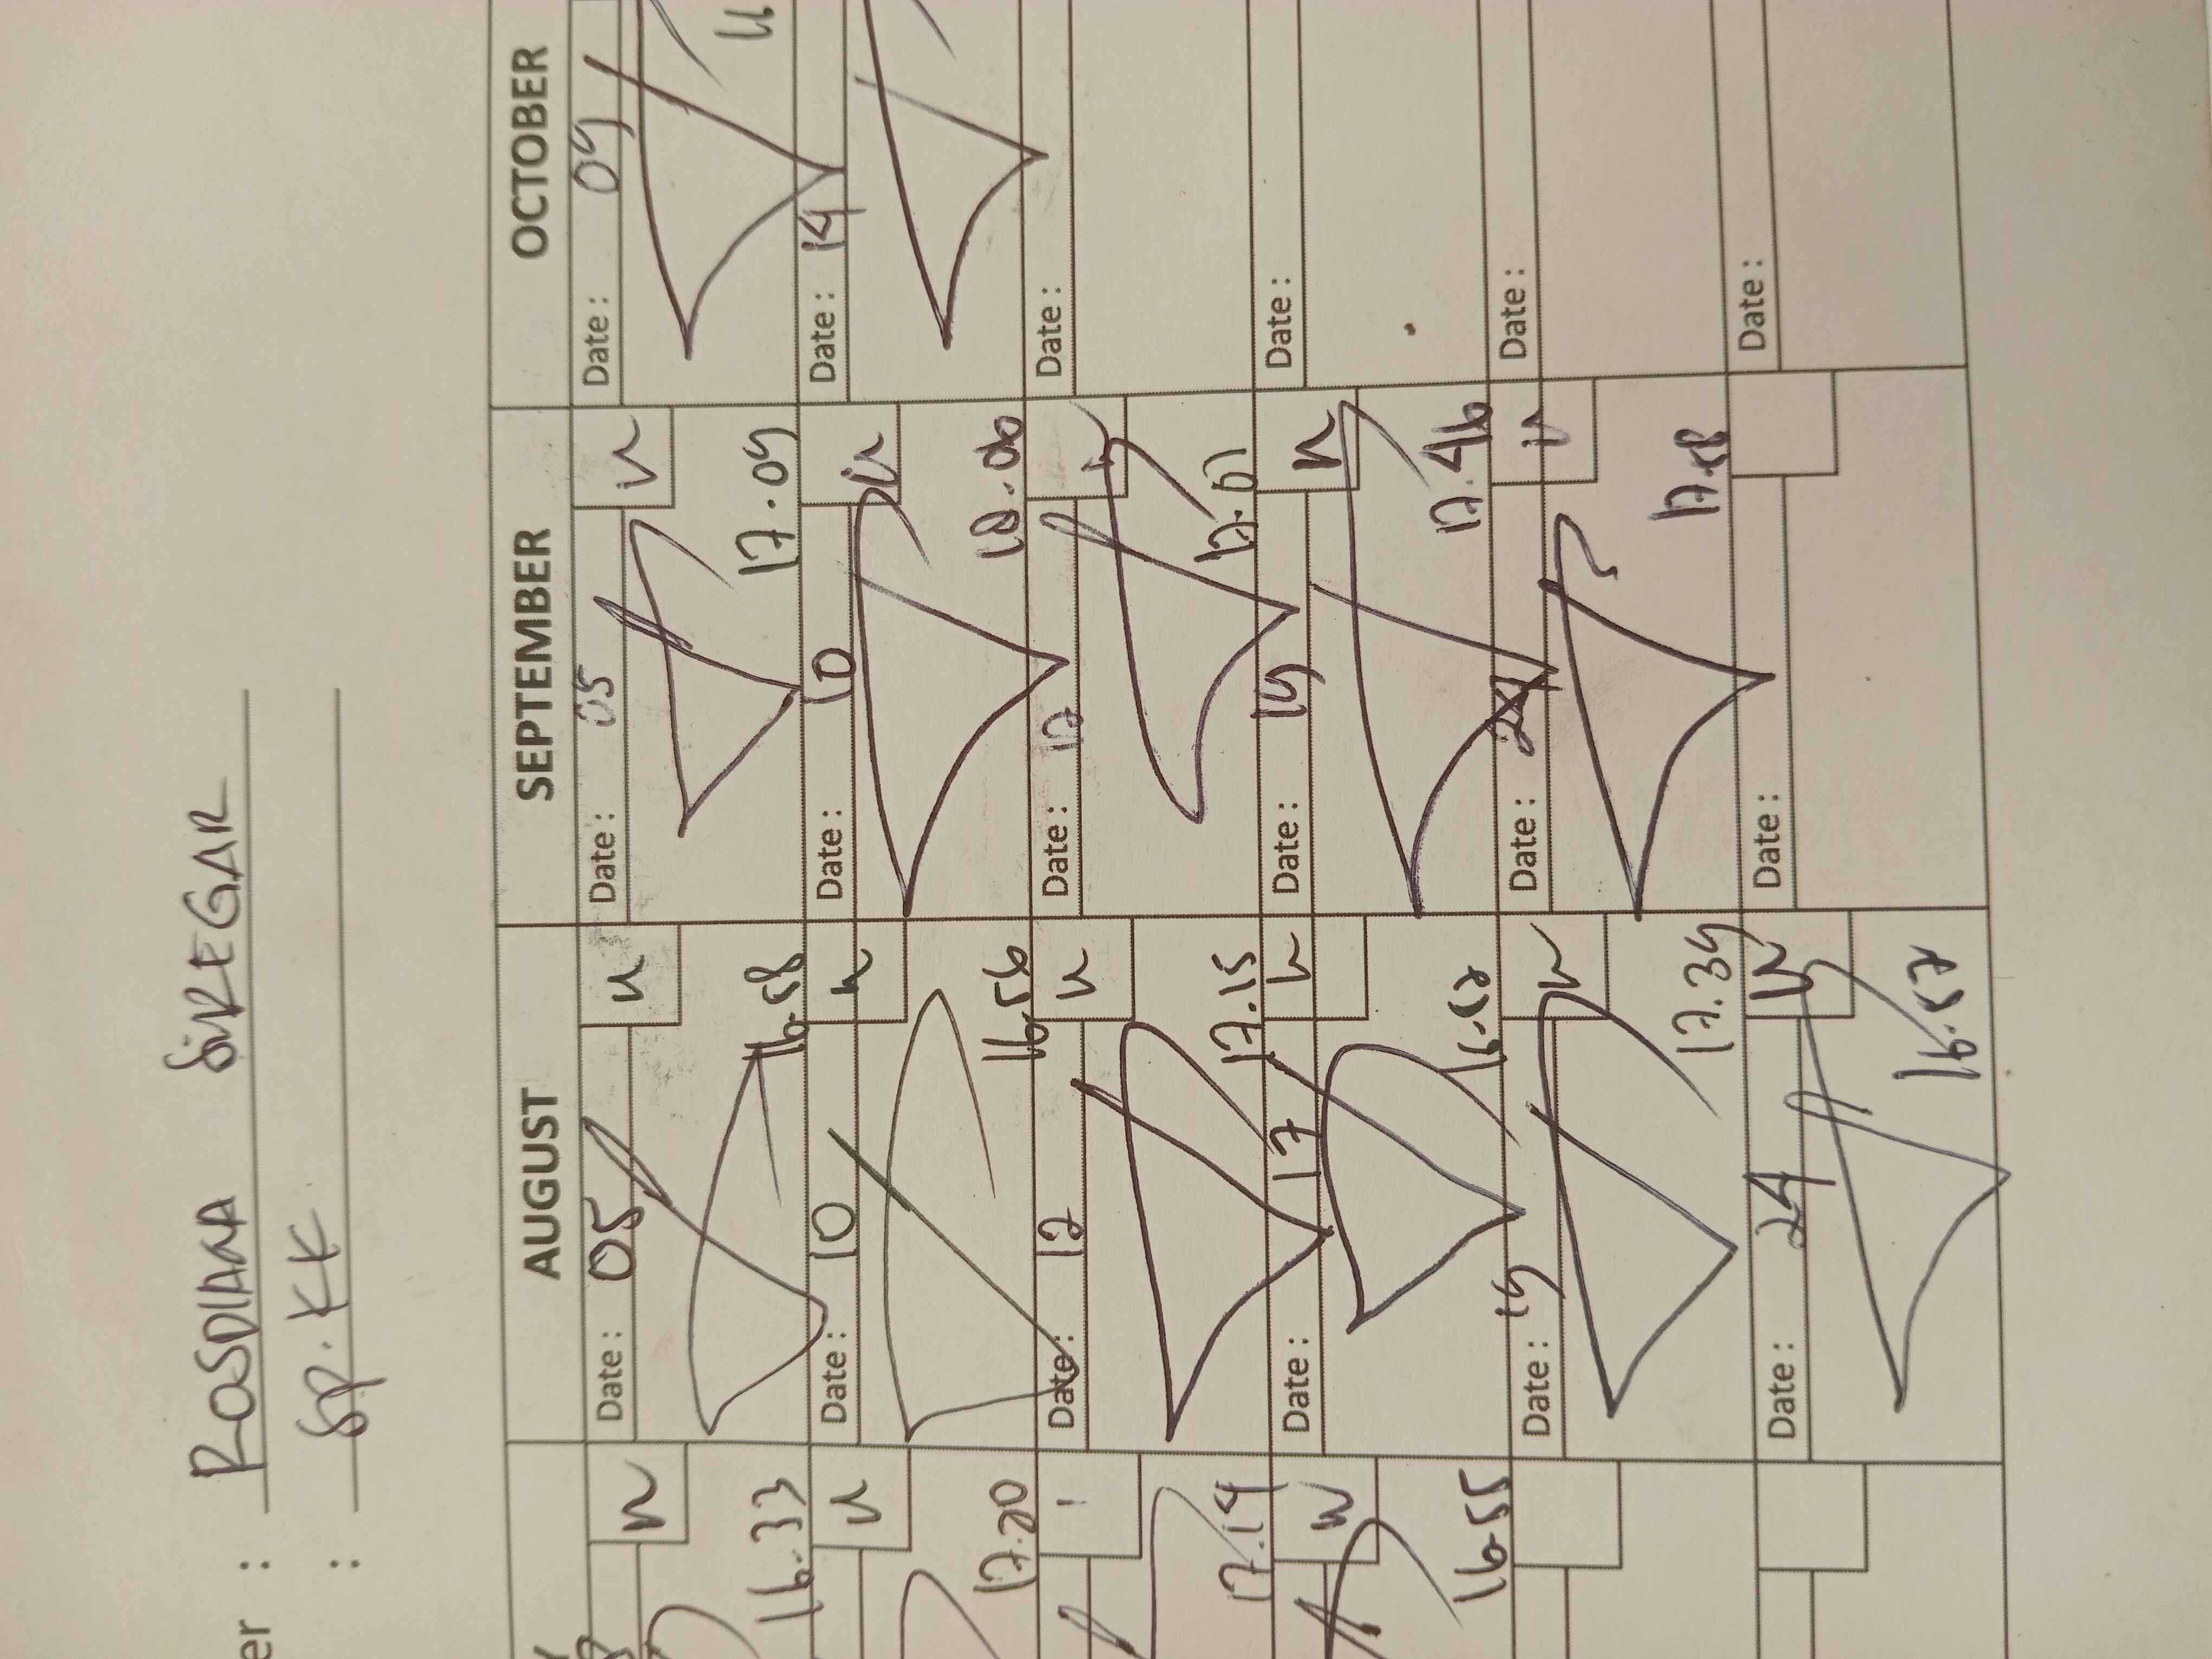 er : ROSDIANA SIREGAR
: SP. KK
AUGUST SEPTEMBER OCTOBER
16.33
Date : 05
16.58
Date : 05
17.09
Date : 09
17.20
Date : 10
16.56
Date : 10
18.00
Date : 14
17.14
Date : 12
17.15
Date : 12
Date :
16.55
Date : 17
16.57
Date : 19
17.46
Date :
Date : 19
17.39
Date : 24
Date :
Date : 24
16.57
Date :
Date :